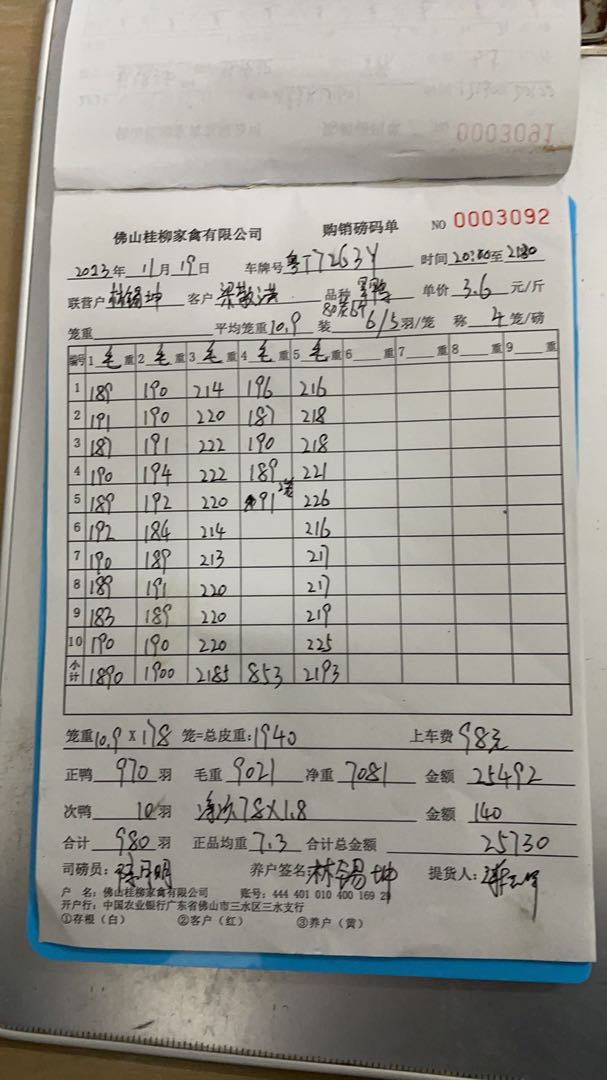 0003091
佛山桂柳家禽有限公司 购销磅码单 NO 0003092
2023年 11月 19日 车牌号 粤T7263Y 时间 20:00至2130
联营户 林锡坤 客户 品种 单价 3.6 元/斤
笼重 平均笼重 10.9 装 6/5 羽/笼 称 4 笼/磅
编号 1 毛 重 2 毛 重 3 毛 重 4 毛 重 5 毛 重 6 重 7 重 8 重 9 重
1 189 190 214 196 216
2 191 190 220 187 218
3 187 191 222 190 218
4 190 194 222 189 221
5 189 192 220 91 2笼 226
6 192 184 214 216
7 190 189 213 217
8 189 191 220 217
9 183 189 220 219
10 190 190 220 225
小计 1890 1900 2185 853 2193
笼重 10.9 X 178 笼=总皮重: 1940 上车费 98元
正鸭 970 羽 毛重 9021 净重 7081 金额 25492
次鸭 10 羽 净次78X1.8 金额 140
合计 980 羽 正品均重 7.3 合计总金额 25730
司磅员: 养户签名 林锡坤 提货人:
户 名: 佛山桂柳家禽有限公司 账号: 444 401 010 400 169 29
开户行: 中国农业银行广东省佛山市三水区三水支行
①存根(白) ②客户(红) ③养户(黄)